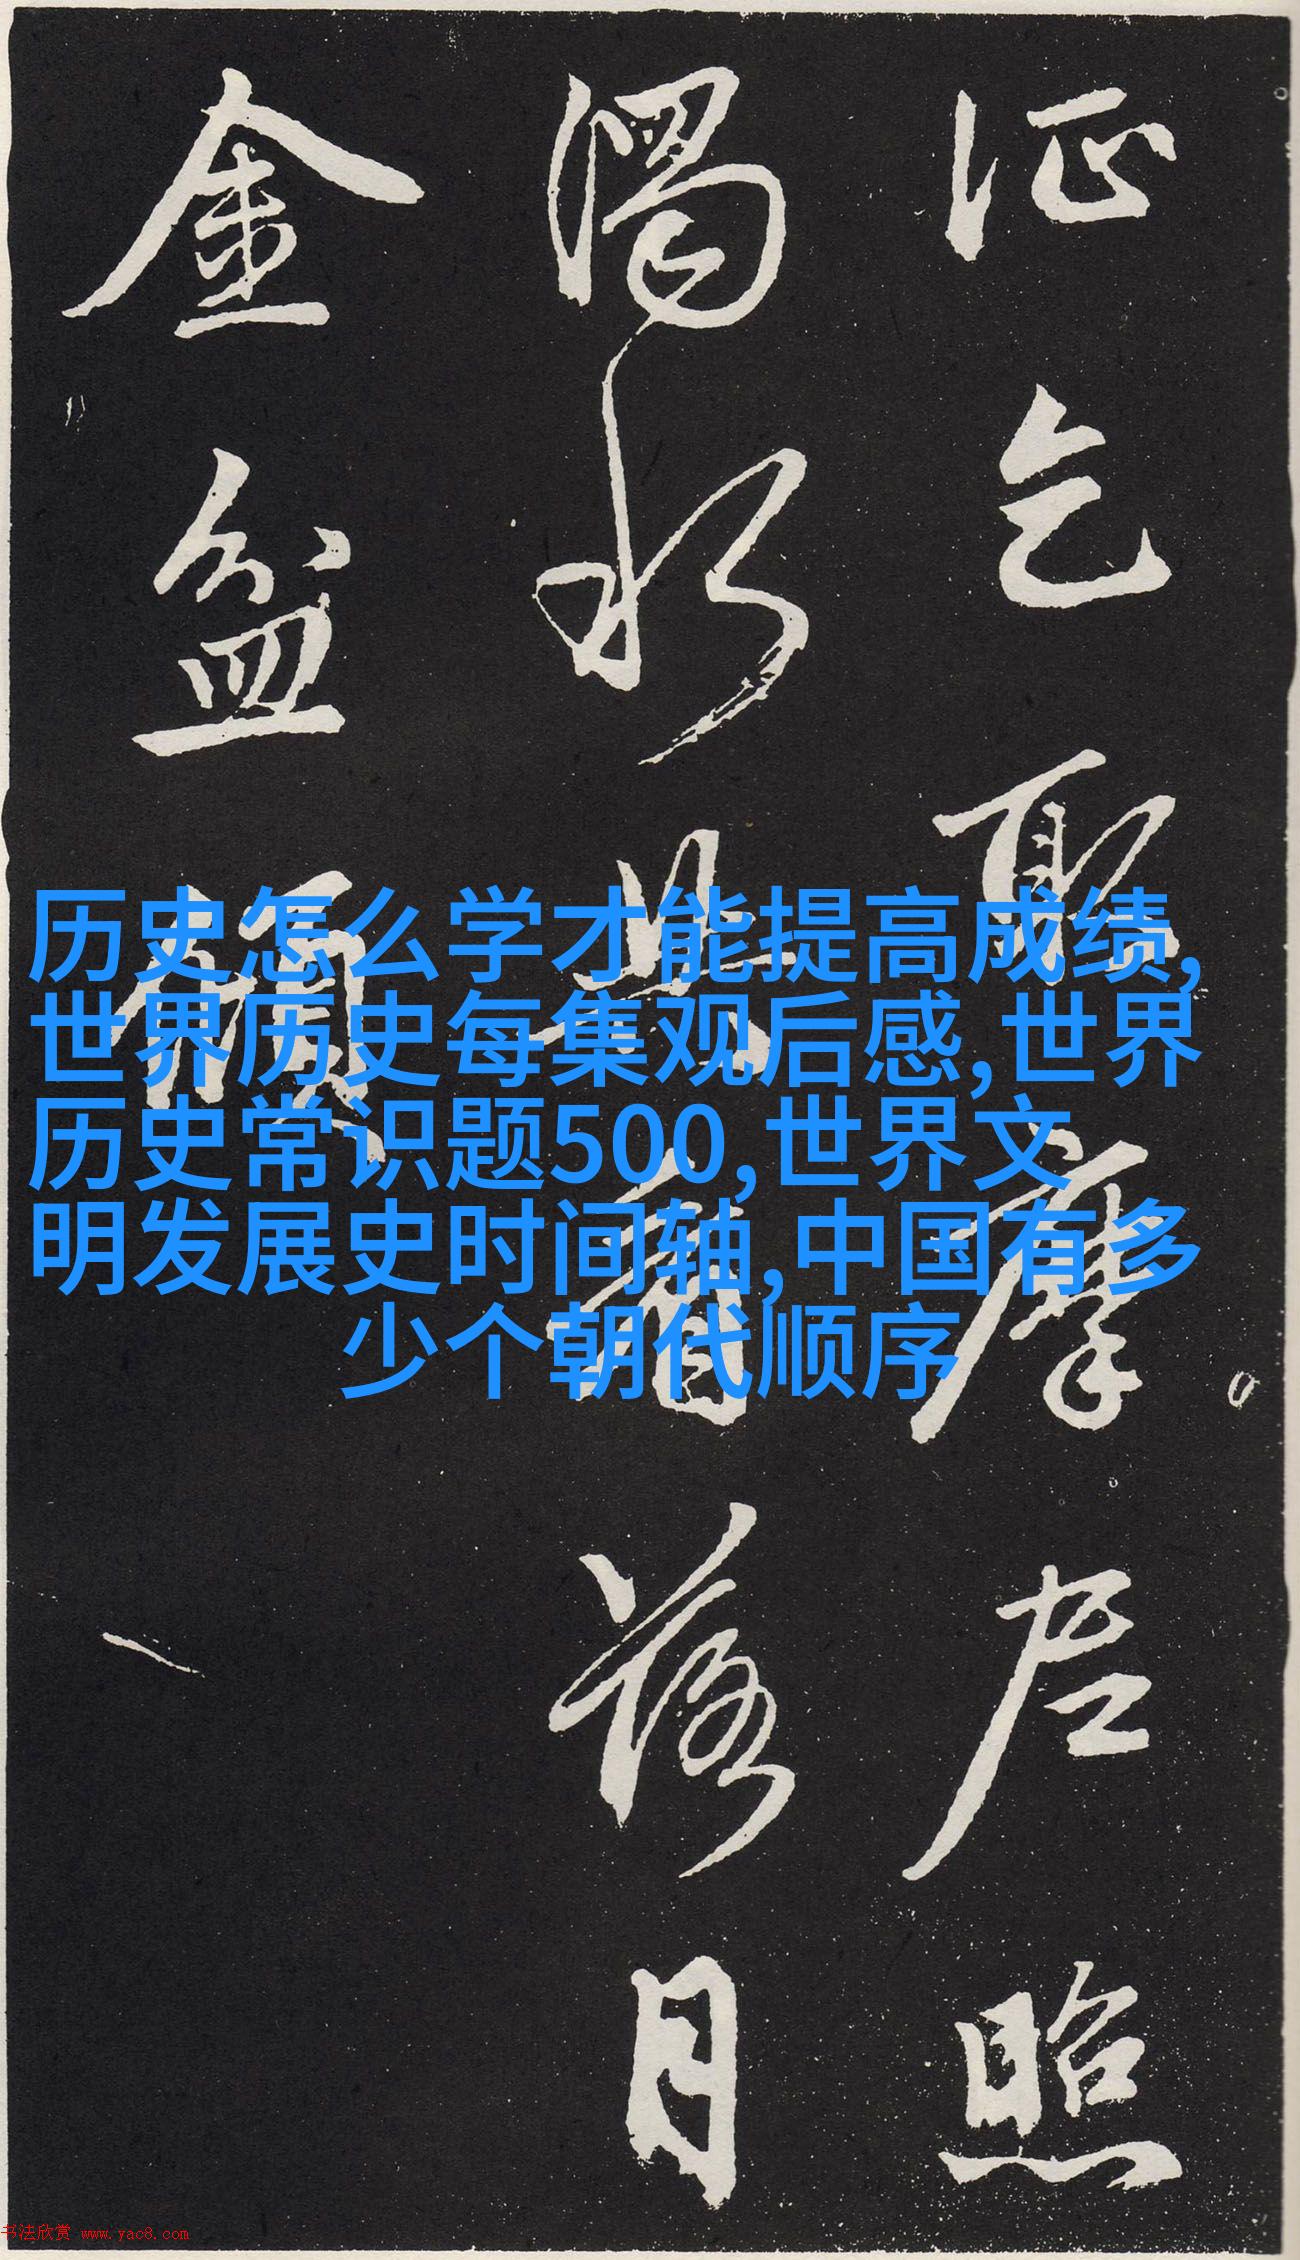 证乞取摩尼照
濁水共看落月
金盆傾
历史怎么学才能提高成绩,
世界历史每集观后感,世界
历史常识题500,世界文
明发展史时间轴,中国有多
少个朝代顺序
书法欣赏 www.yac8.com